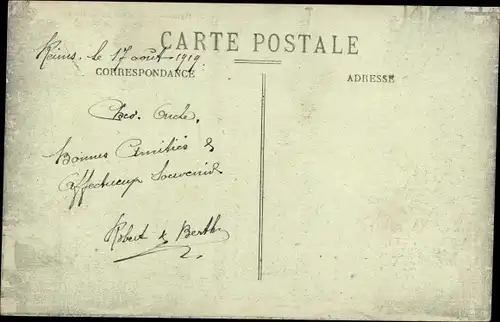 CARTE POSTALE
Reims. le 17 août 1919.
CORRESPONDANCE
ADRESSE
Cher Oncle,
Bonnes Amitiés &
affectueux Souvenirs
Robert & Berthe